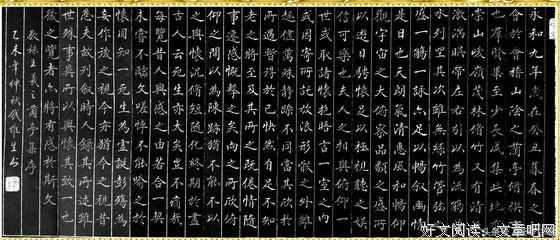 永和九年歲在癸丑暮春之初
會於會稽山陰之蘭亭脩禊事
也群賢畢至少長咸集此地有
崇山峻嶺茂林脩竹又有清流
激湍暎帶左右引以為流觴曲
水列坐其次雖無絲竹管弦之
盛一觴一詠亦足以暢敘幽情
是日也天朗氣清惠風和暢仰
觀宇宙之大俯察品類之盛所
以遊目騁懷足以極視聽之娛
信可樂也夫人之相與俯仰一
世或取諸懷抱晤言一室之內
或因寄所託放浪形骸之外雖
趣舍萬殊靜躁不同當其欣於
所遇暫得於己快然自足不知
老之將至及其所之既倦情隨
事遷感慨繫之矣向之所欣俯
仰之間以為陳跡猶不能不以
之興懷況脩短隨化終期於盡
古人云死生亦大矣豈不痛哉
每覽昔人興感之由若合一契
未嘗不臨文嗟悼不能喻之於
懷固知一死生為虛誕齊彭殤為
妄作後之視今亦猶今之視昔
悲夫故列敘時人錄其所述雖
世殊事異所以興懷其致一也
後之覽者亦將有感於斯文
敬錄王羲之蘭亭集序
乙未年仲秋錢維生書
好文阅读 文章吧网